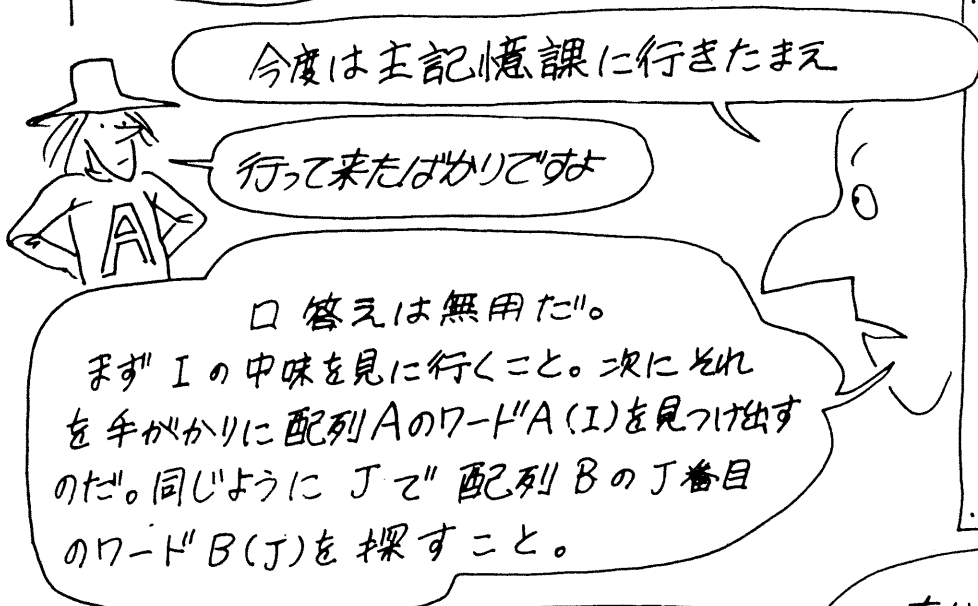 今度は主記憶課に行きたまえ
行って来たばかりですよ
A
口答えは無用だ。
まずIの中味を見に行くこと。次にそれ
を手がかりに配列AのワードA(I)を見つけ出す
のだ。同じようにJで配列BのJ番目
のワードB(J)を探すこと。